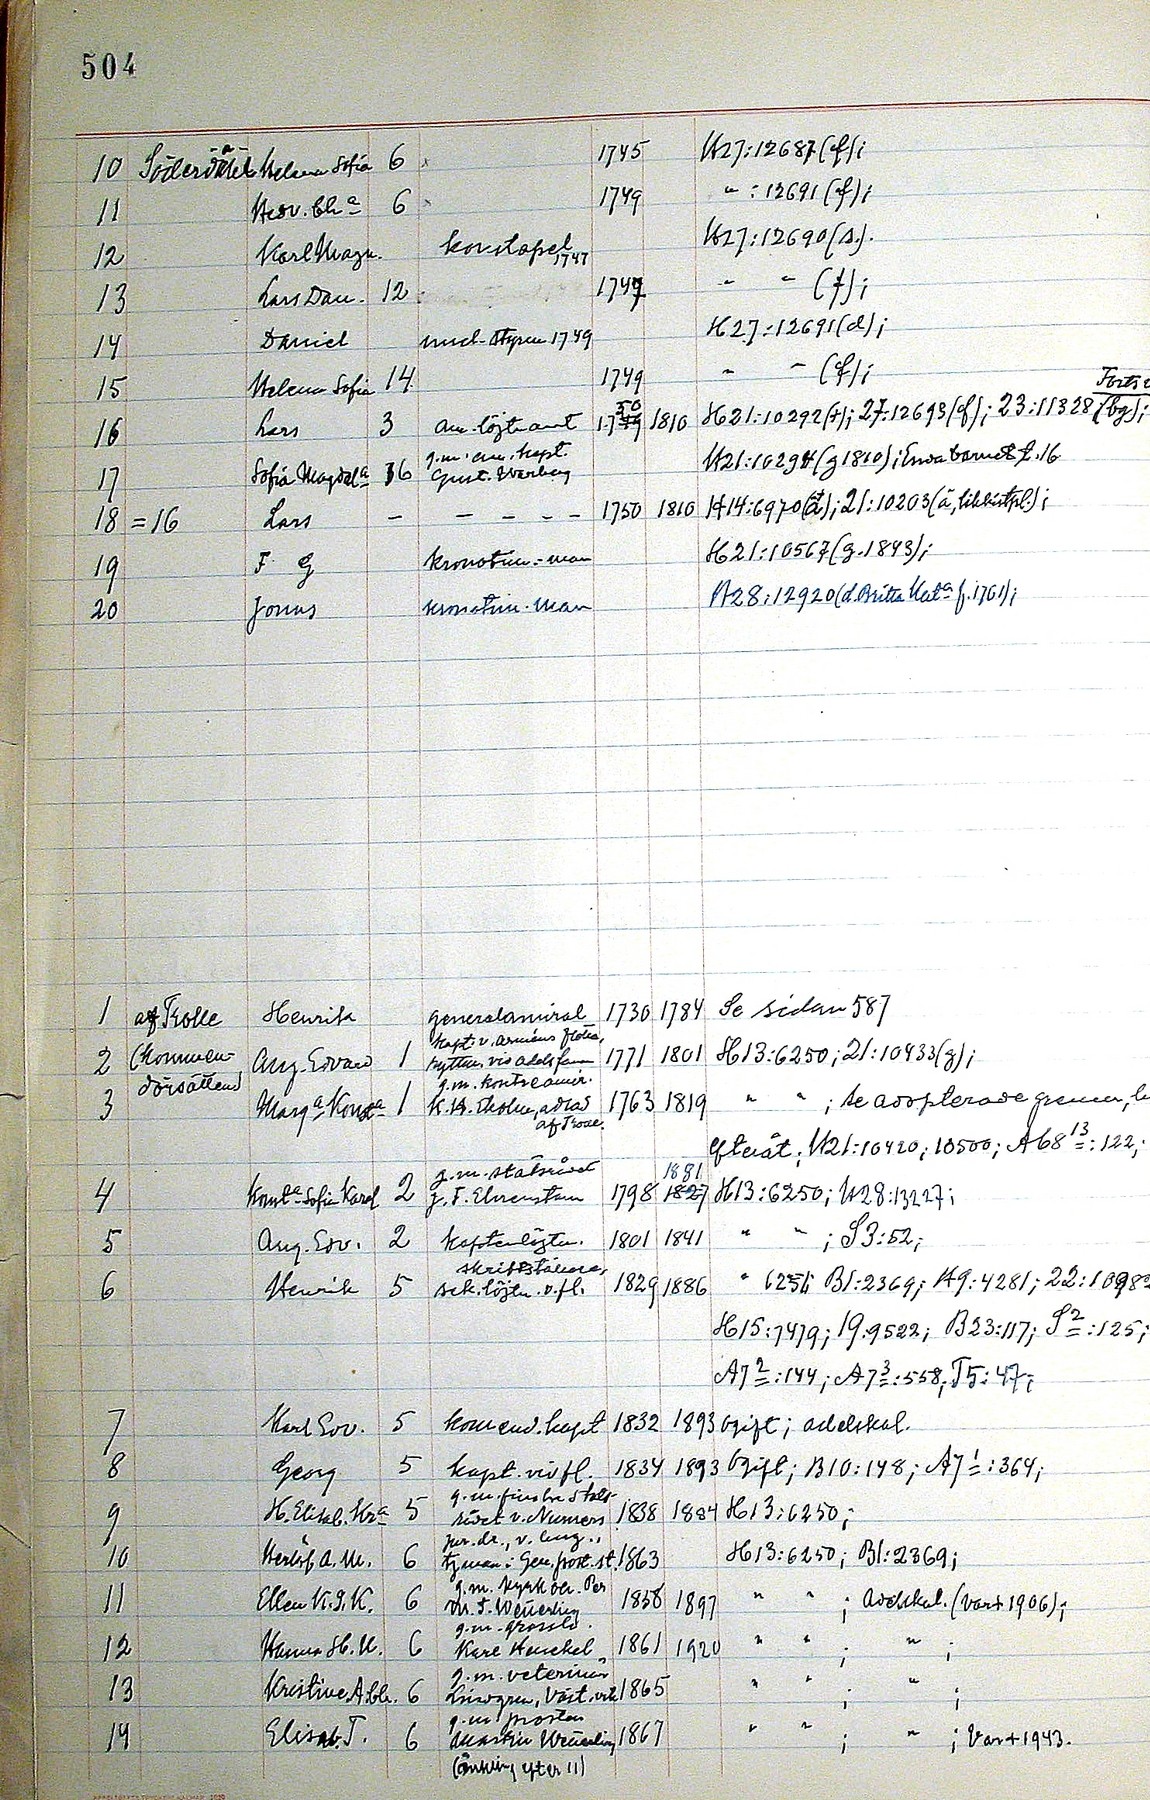 504
10 Helena Sofia 6 1745 H27:12687 (f);
11 Hedv. Chª 6 1749 " :12691 (f);
12 Karl Magn. konstapel 1747 H27:12690 (s).
13 Lars Dan. 12 1749 " " (f);
14 Daniel und-styrm 1749 H27:12691 (d);
15 Helena Sofia 14 1749 " " (f);
16 Lars 3 am.löjtnant 1750 1810 H21:10292 (†); 27:12693 (f); 23:11328 (bg);
17 Sofia Magdalª 16 g.m. am. kapt. Gust. Warberg H21:10294 (g 1810); Enda barnet t. 16
18 =16 Lars – – – – – – 1750 1810 H14:6970 (å); 21:10203
19 F G kronotim.-man H21:10567 (g. 1843);
20 Jonas kronotim.-man A28:12920 (d. Britta Katª f. 1761);
1 af Trolle Henrik generalamiral 1730 1784 Se sidan 587
2 (Kommen- Aug. Edvard 1 kapt v. arméns flotta, 1771 1801 H13:6250; 21:10433 (g);
dörsätten)
3 Margª Konstª 1 g.m. konteramir. 1763 1819 " " ; se adopterade grenen,
af Trolle
efteråt; H21:10420; 10500; A68 13:122;
4 Konstª Sofia Karol 2 g.m. statsrådet J. F. Ehrenstam 1798 1827 1881 H13:6250; H28:13227;
5 Aug. Edv. 2 kaptenlöjtn. 1801 1841 " " ; S3:52;
6 Henrik 5 skriftställare, sek.löjtn. v. fl. 1829 1886 " 6251; B1:2369; H9:4281;
H15:7479; 19:9522; B23:117; S2:125;
A7 2:144; A7 3:558; T5:47;
7 Karl Edv. 5 komend. kapt 1832 1893 Ogift; adelskal.
8 Georg 5 kapt. vid fl. 1834 1893 Ogift; B10:148; A7 1:364;
9 H. Elisab. Krª 5 g.m. finska stats- rådet v. Numers 1838 1884 H13:6250;
10 Herlöf A. M. 6 jur. dr., v. häg., tjman i Gen. post. st. 1863 H13:6250; B1:2369;
11 Ellen K. J. K. 6 g.m. kyrkoh. Per 1858 1897 " " ; Adelskal. (var † 1906);
12 Hanna H. U. 6 g.m. grossh. Karl Henckel 1861 1920 " " ; " ;
13 Kristine A. Ch. 6 g.m. veterinär 1865 " " ; " ;
14 Elisab. T. 6 g.m. prosten Martin 1867 " " ; " ; Var † 1943.
(änkling efter 11)